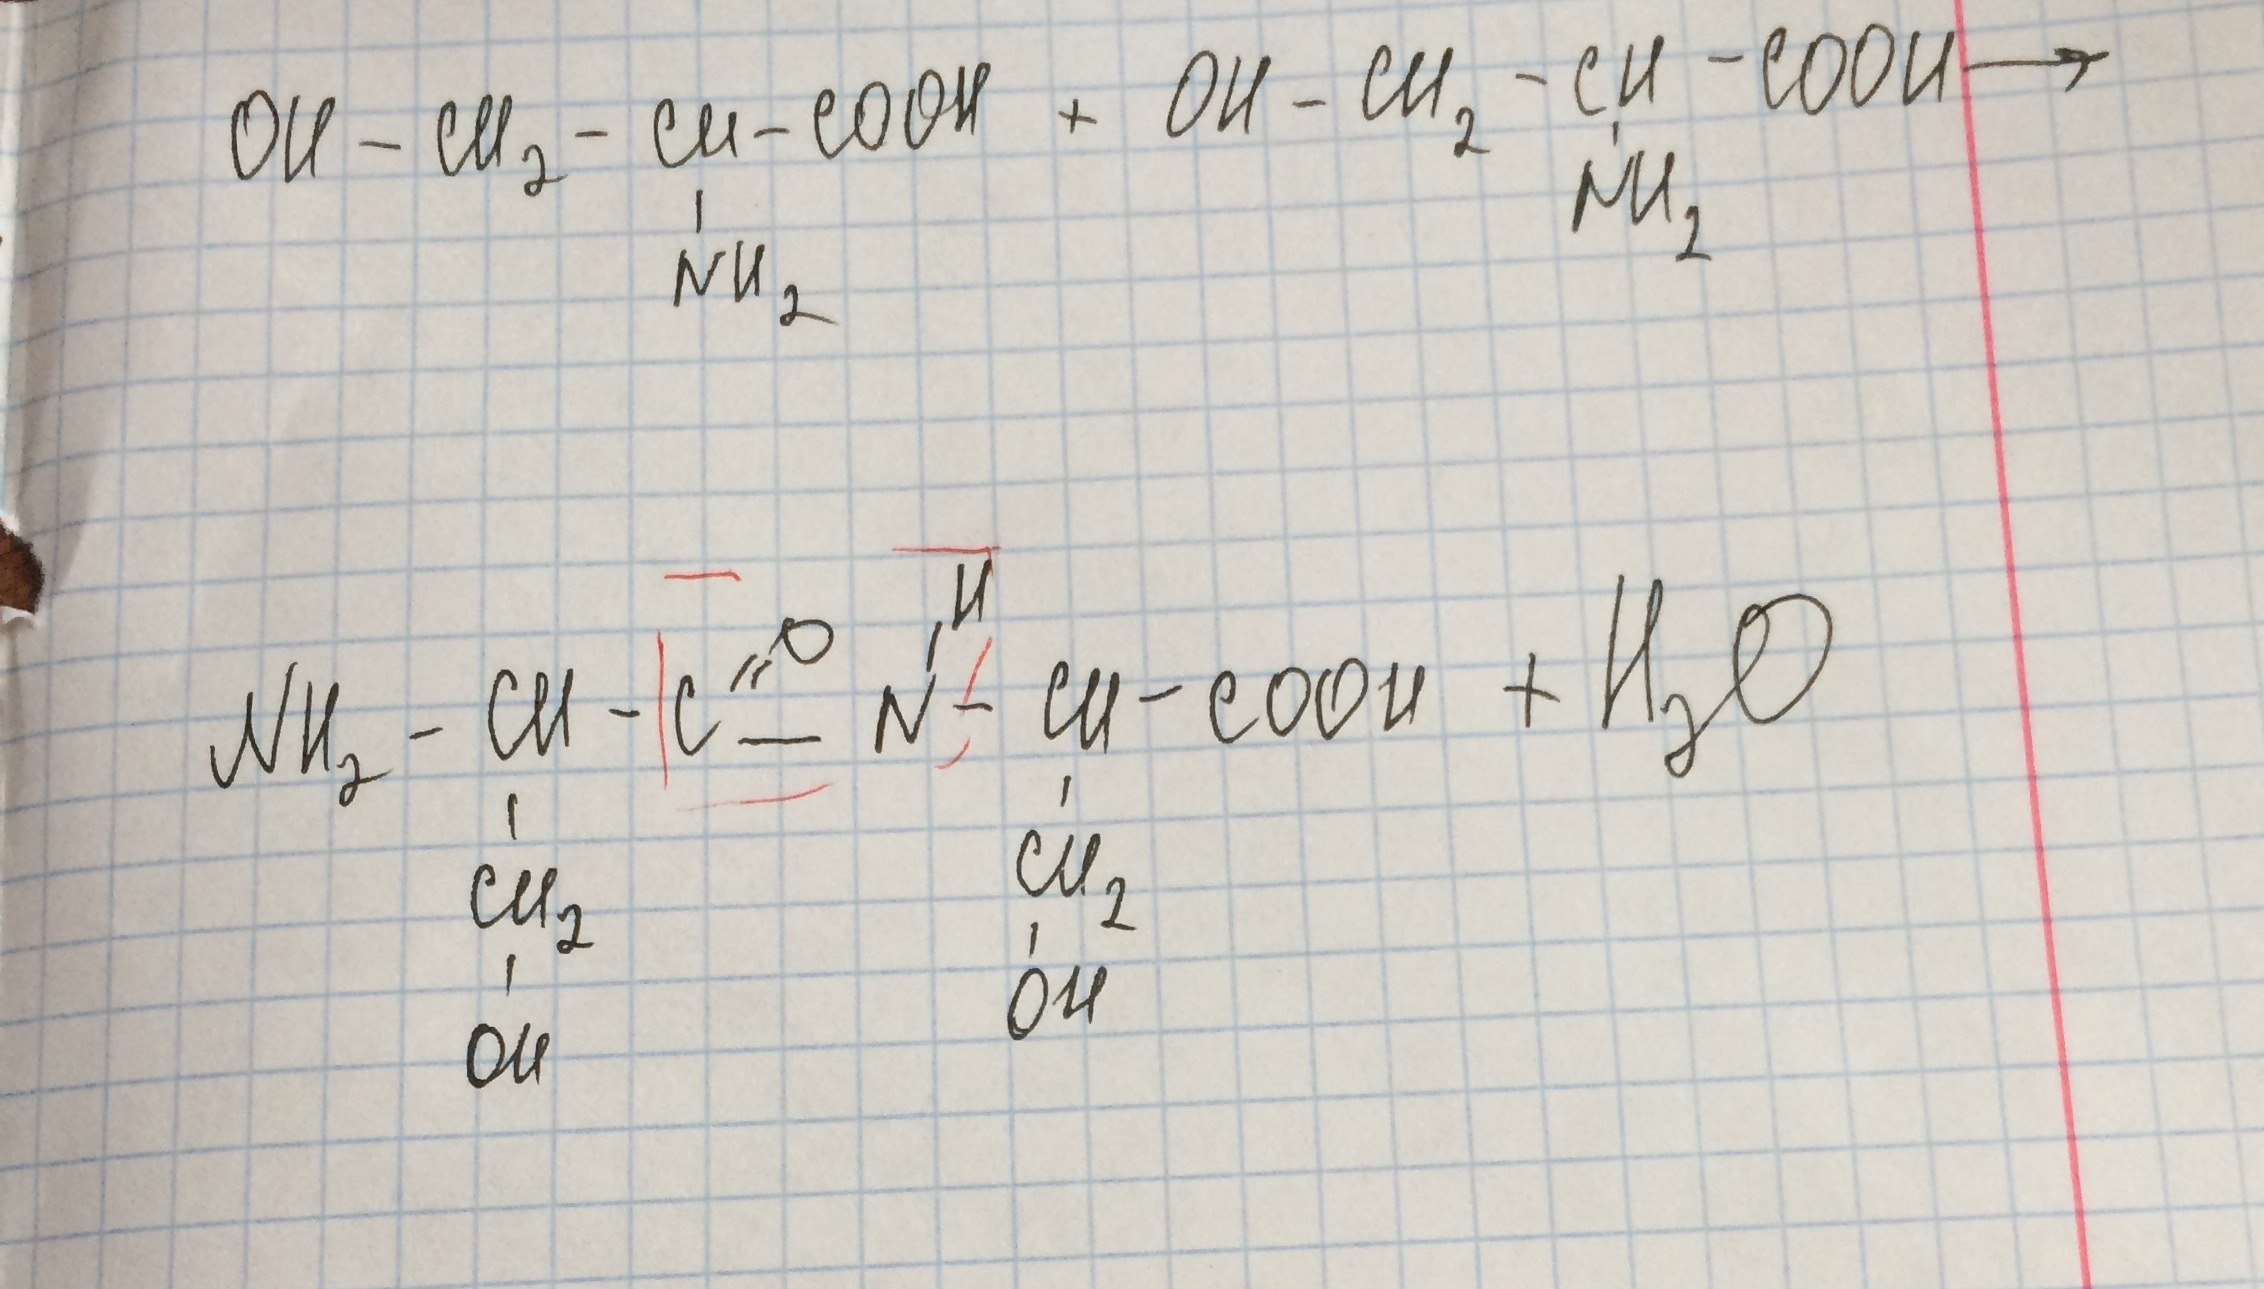 OH - CH2 - CH - COOH + OH - CH2 - CH - COOH →
NH2 NH2
H
O
NH2 - CH - C = — N - CH - COOH + H2O
CH2 CH2
OH OH